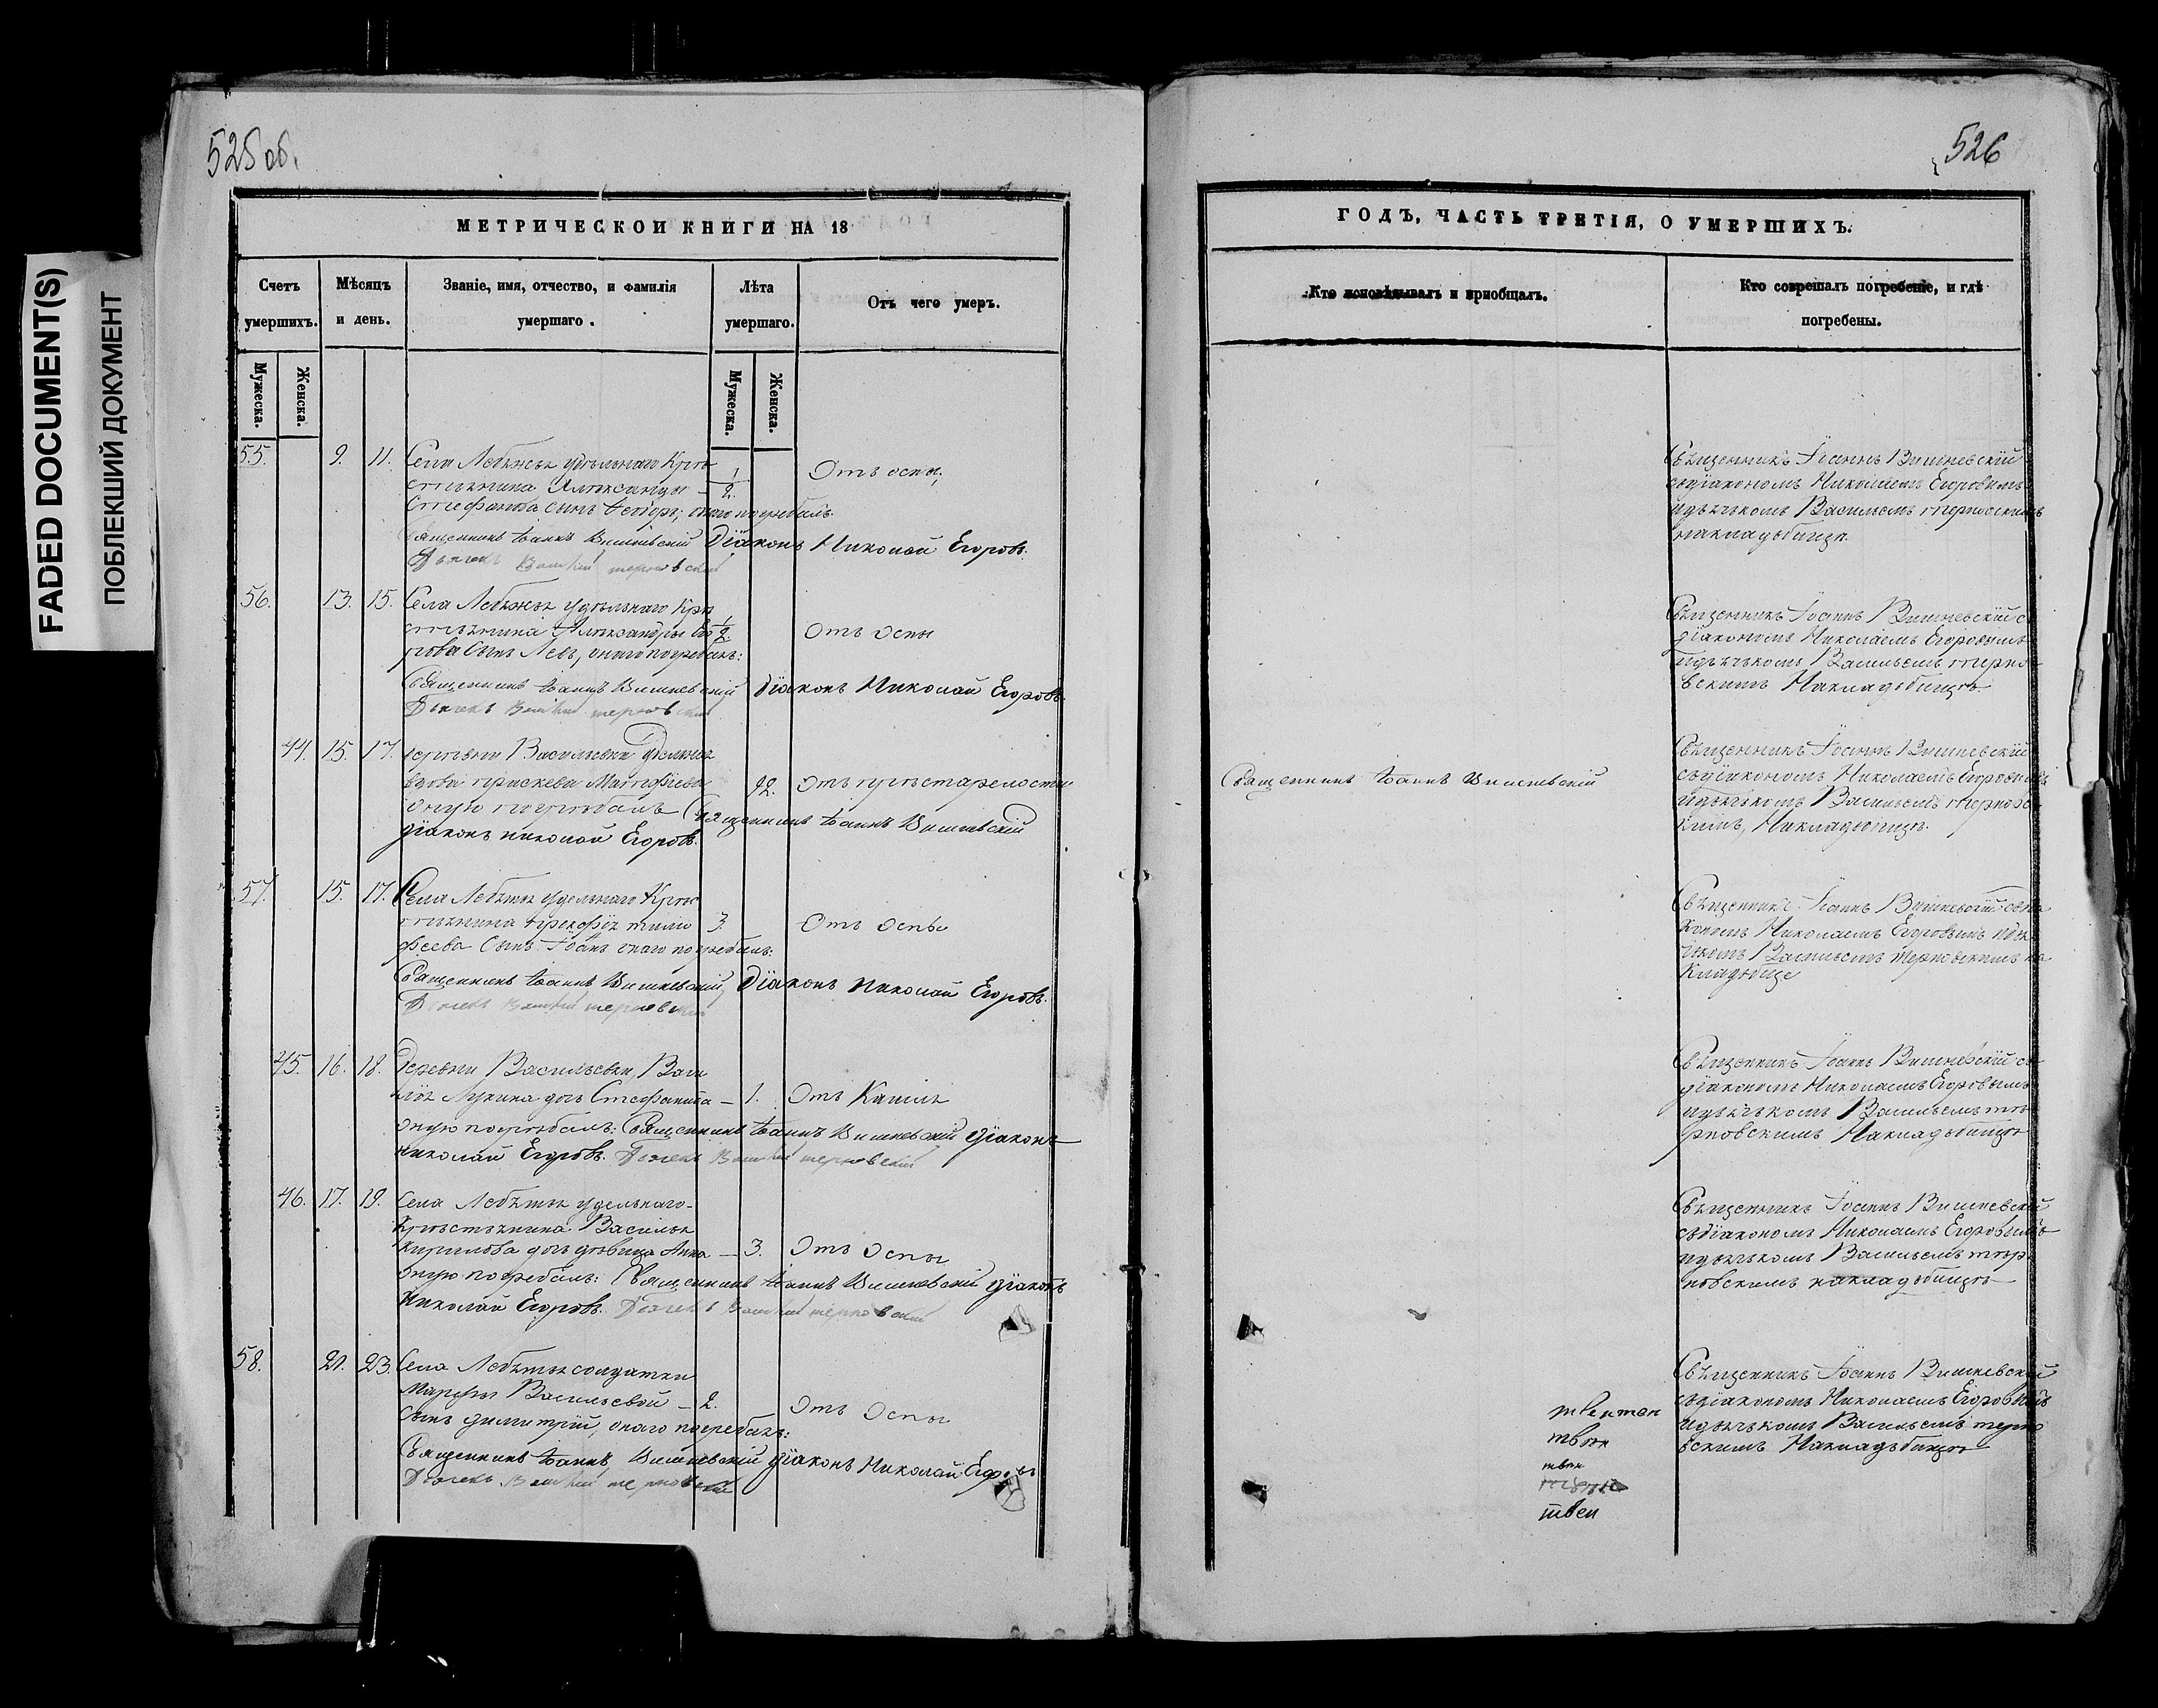 FADED DOCUMENT(S)
ПОБЛЕКШИЙ ДОКУМЕНТ
525 об.
МЕТРИЧЕСКОИ КНИГИ НА 18
Счетъ умершихъ.
Мѣсяцъ и день.
Званіе, имя, отчество, и фамилія умершаго.
Лѣта умершаго.
Отъ чего умеръ.
Мужеска.
Женска.
Мужеска.
Женска.
55. 9. 11. Села Лебяжья удѣльнаго Крес
стьянина Александра 1/2 Отъ оспы,
Стефанова сынъ Феодоръ, онаго погребалъ
Священникъ Іоаннъ Вишневский Діаконъ Николай Егоровъ.
Дьячекъ Василий терновский
56. 13. 15. Села Лебяжья удѣльнаго Кре
стьянина Александры Его 1/2 Отъ оспы
рова сынъ Левъ, онаго погребалъ:
Священникъ Іоаннъ Вишневский Діаконъ Николай Егоровъ
Дьячекъ Василий терновский
44. 15. 17. деревни Васильевки
вдова 92. Отъ престарелости
оную погребалъ Священникъ Іоаннъ Вишневский
діаконъ николай Егоровъ.
57. 15. 17. Села удельнаго Крес
стьянина тимо 3. Отъ оспы
феева сынъ Іоаннъ онаго погребалъ:
Священникъ Іоаннъ Вишневский, Діаконъ николай Егоровъ.
Дьячекъ Василий терновский
45. 16. 18. Деревни Васильевки
Лукина дочь Стефанида 1. Отъ Кашля
оную погребалъ: Священникъ Іоаннъ Вишневский діаконъ
николай Егоровъ. Дьячекъ Василий терновский
46. 17. 19. Села удельнаго
Крестьянина Василья
Кирилова дочь девица Анна 3. Отъ Оспы
оную погребалъ: Священникъ Іоаннъ Вишневский діаконъ
Николай Егоровъ. Дьячекъ Василий терновский
58. 21. 23. Села солдатки
Марфы Васильевой 2. Отъ Оспы
сынъ димитрій, онаго погребалъ:
Священникъ Іоаннъ Вишневский діаконъ Николай Егоровъ
Дьячекъ Василий терновский
526
ГОДЪ, ЧАСТЬ ТРЕТІЯ, О УМЕРШИХЪ.
Кто исповѣдывалъ и пріобщалъ.
Кто соврешалъ погребеніе, и гдѣ погребены.
Священникъ Іоаннъ Вишневскій
съдіакономъ Николаемъ Егоровымъ
идьячькомъ Васильемъ терновскимъ
накладьбище.
Священникъ Іоаннъ Вишневскій съ
діакономъ Николаемъ Егоровымъ
идьячькомъ Васильемъ терно
вскимъ Накладьбище
Священникъ Іоаннъ Вишневский
Священникъ Іоаннъ Вишневскій
съдіакономъ Николаемъ Егоровымъ
идьячькомъ Васильемъ терновс
кимъ, Накладьбище.
Священникъ Іоаннъ Вишневский съдіа
кономъ Николаемъ Егоровымъ идья
чкомъ Васильемъ терновскимъ на
Кладьбище
Священникъ Іоаннъ Вишневский съ
діакономъ Николаемъ Егоровымъ
идьячькомъ Васильемъ те
рновскимъ Накладьбище
Священникъ Іоаннъ Вишневский
съдіакономъ Николаемъ Егоровымъ
идьячькомъ Васильемъ тер
новскимъ накладьбище
Священникъ Іоаннъ Вишневский
съдіакономъ Николаемъ Егоровымъ
идьячькомъ Васильемъ терно
вскимъ Накладьбище